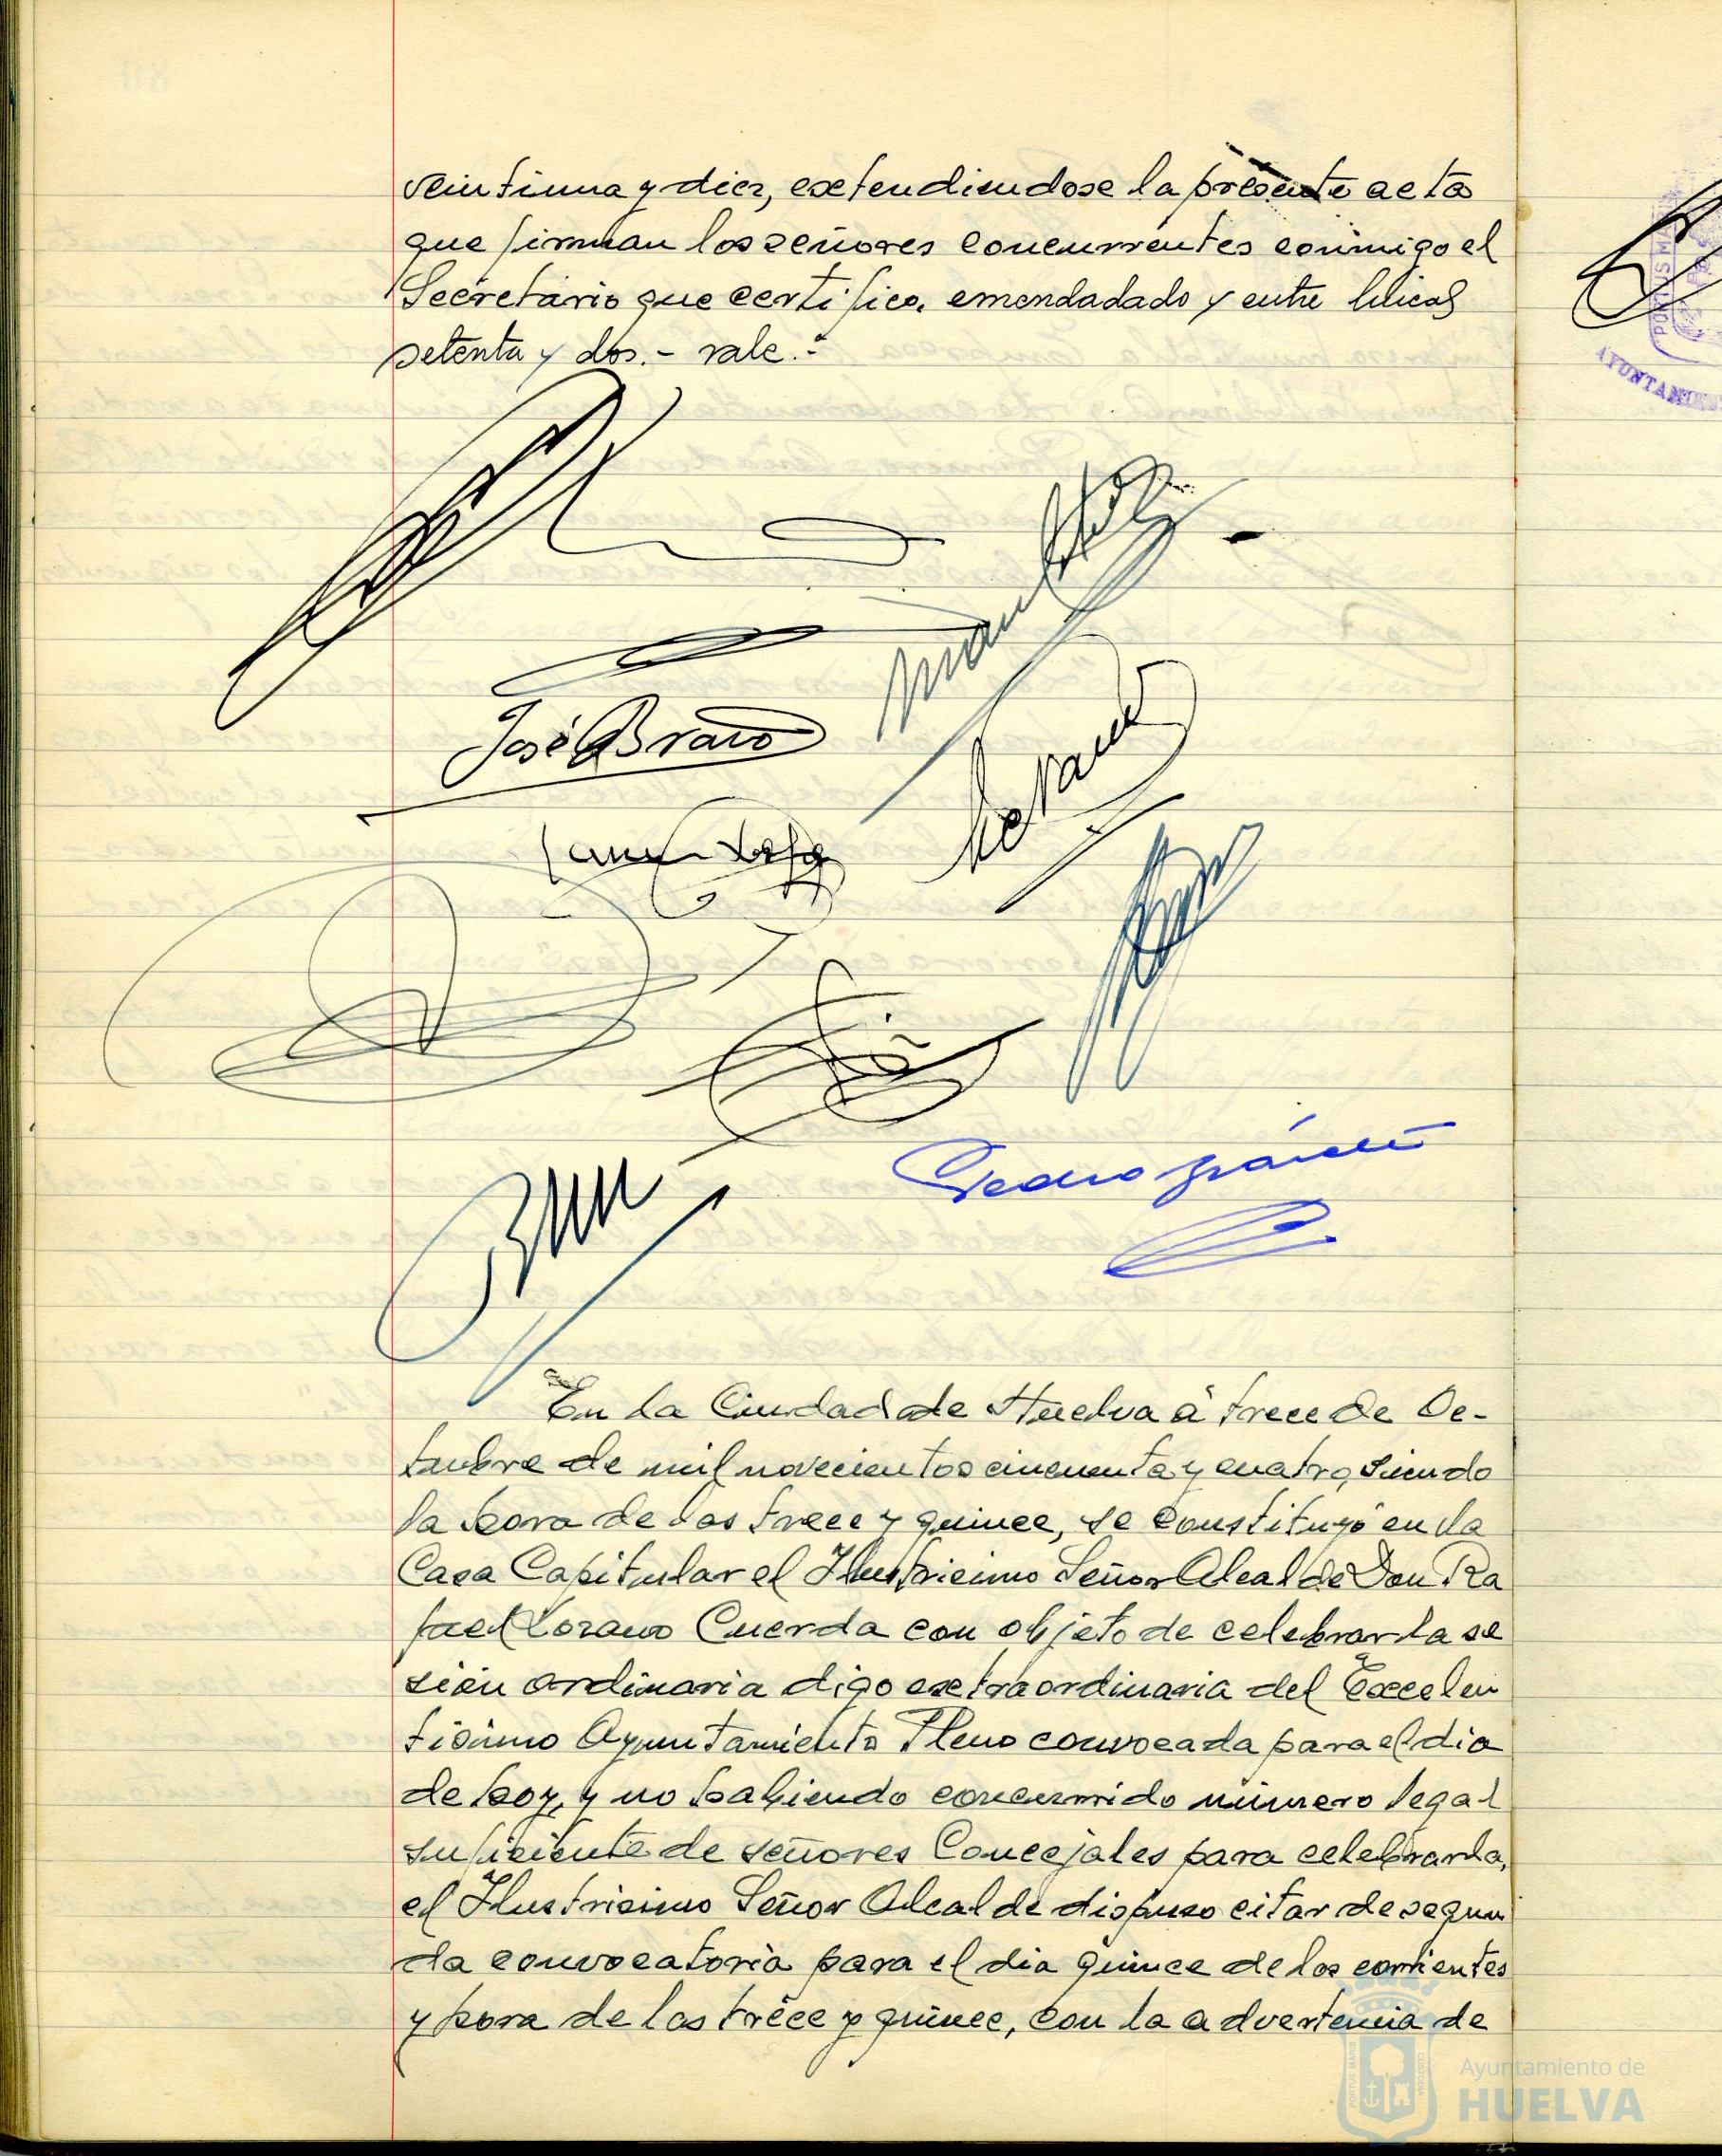 veintiuna y diez, extendiendose la presente acta
que firman los señores concurrentes conmigo el
Secretario que certifico. emendadado y entre lineas
setenta y dos.- vale.-
José Bravo
Manuel
En la Ciudad de Huelva á trece de Oc-
tubre de mil novecientos cincuenta y cuatro, siendo
la hora de las trece y quince, se constituyó en la
Casa Capitular el Ilustrisimo Señor Alcalde Don Ra
fael Lozano Cuerda con objeto de celebrar la se
sión ordinaria digo extraordinaria del Excelen
tisimo Ayuntamiento Pleno convocada para el dia
de hoy, y no habiendo concurrido número legal
suficiente de señores Concejales para celebrarla,
el Ilustrisimo Señor Alcalde dispuso citar de segun
da convocatoria para el dia quince de los corrientes
y hora de las trece y quince, con la advertencia de
AYUNTAM
PORTUS M
Ayuntamiento de
HUELVA